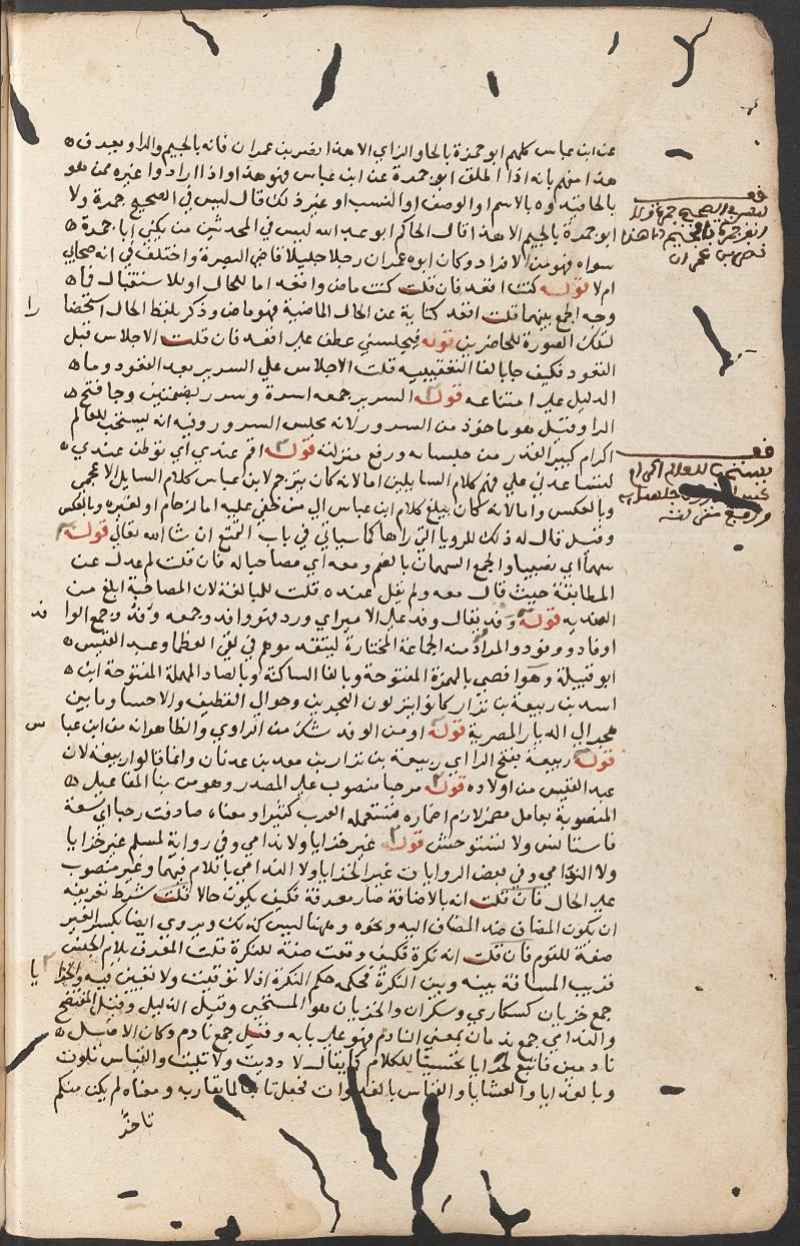 عن ابن عباس كلهم ابو حمزة بالحا والزاي الا هذا نصر بن عمران فانه بالجيم والرا ويعرف
هذا منهم بانه اذا اطلق ابو جمرة عن ابن عباس فهو هذا واذا ارادوا غيره ممن هو
بالحا قيدوه بالاسم او الوصف او النسب او غير ذلك قال ليس في الصحيح جمرة ولا
ابو جمرة بالجيم الا هذا قال الحاكم ابو عبد الله ليس في المحدثين من يكنى ابا جمرة
سواه فهو من الافراد وكان ابوه عمران رجلا جليلا قاضي البصرة واختلف في انه صحابي
ام لا قوله كنت اقعد فان قلت كنت ماض واقعد اما للحال او للاستقبال فما
وجه الجمع بينهما قلت اقعد حكاية عن الحال الماضية فهو ماض وذكر بلفظ الحال استحضا را
لتلك الصورة للحاضرين قوله فيجلسني عطف علي اقعد فان قلت الاجلاس قبل
القعود فكيف جا بالفا التعقيبية قلت الاجلاس علي السرير بعد القعود وما
الدليل علي امتناعه قوله السرير جمعه اسرة وسرر بضمتين وجا فتح
الرا وقيل هو ماخوذ من السرور لانه مجلس السرور وفيه انه يستحب للعالم
اكرام كبير القدر من جلسايه ورفع منزلته قوله اقم عندي اي توطن عندي
لتساعدني علي فهم كلام السايلين اما لانه كان يترجم لابن عباس كلام السايل الاعجمي
وبالعكس واما لانه كان يبلغ كلام ابن عباس الي من خفي عليه اما لزحام او لغيره وبالعكس
وقيل قال له ذلك للرويا التي راها كما سياتي في باب التمتع ان شا الله تعالي قوله
سهما اي نصيبا والجمع السهمان بالضم ومعه اي مصاحبا له فان قلت لم عدل عن
المطابقة حيث قال معه ولم يقل عنده قلت للمبالغة لان المصاحبة ابلغ من
العنديه قوله وفد يقال وفد علي الامير اي ورد فهو وافد وجمعه وفد وجمع الوا فد
اوفاد ووفود والمراد منه الجماعة المختارة ليتقدموهم في لقي العظما وعبد القيس
ابو قبيلة وهو افصى بالهمزة المفتوحة وبالفا الساكنة وبالصاد المهملة المفتوحة ابن
اسد بن ربيعة بن نزار كانوا ينزلون البحرين وحوالي القطيف والاحسا وما بين
هجر الي الديار المصرية قوله او من الوفد شك من الراوي والظاهر انه من ابن عبا س
قوله ربيعة بفتح الرا اي ربيعة بن نزار بن معد بن عدنان وانما قالوا ربيعة لان
عبد القيس من اولاده قوله مرحبا منصوب علي المصدر وهو من بنا المفاعيل
المنصوبة بعامل مضمر لازم اضماره تستعمله العرب كثيرا ومعناه صادفت رحبا اي سعة
فاستانس ولا تستوحش قوله غير خزايا ولا ندامي وفي رواية لمسلم غير خزايا
ولا الندامي وفي بعض الروايات غير الخزايا ولا الندامي باللام فيهما وغير منصوب
علي الحال فان قلت انه بالاضافة صار معرفة فكيف يكون حالا قلت شرط تعريفه
ان يكون المضاف ضد المضاف اليه ونحوه وههنا ليس كذلك ويروي ايضا بكسر الغير
صفة للقوم فان قلت انه نكرة فكيف وقعت صفة للنكرة قلت المعرف بلام الجنس
قريب المسافة بينه وبين النكرة فحكمه حكم النكرة اذ لا توقيت ولا تعيين فيه والخزا يا
جمع خزيان كسكاري وسكران والخزيان هو المستحيي وقيل الذليل وقيل المفتضح
والندامي جمع ندمان بمعني النادم فهو علي بابه وقيل جمع نادم وكان الاصل
نادمين فاتبع لخزايا تحسينا للكلام كما يقال لا دريت ولا تليت والقياس تلوت
وبالغدايا والعشايا والقياس بالغدوات فجعل تابعا لما يقاربه ومعناه لم يكن منكم
تاخر
ليس في الصحيح جمرة ولا
ابو جمرة بالجيم الا هذا
نصر بن عمران
يستحب للعالم اكرام
جلسايه
ورفع منزلته